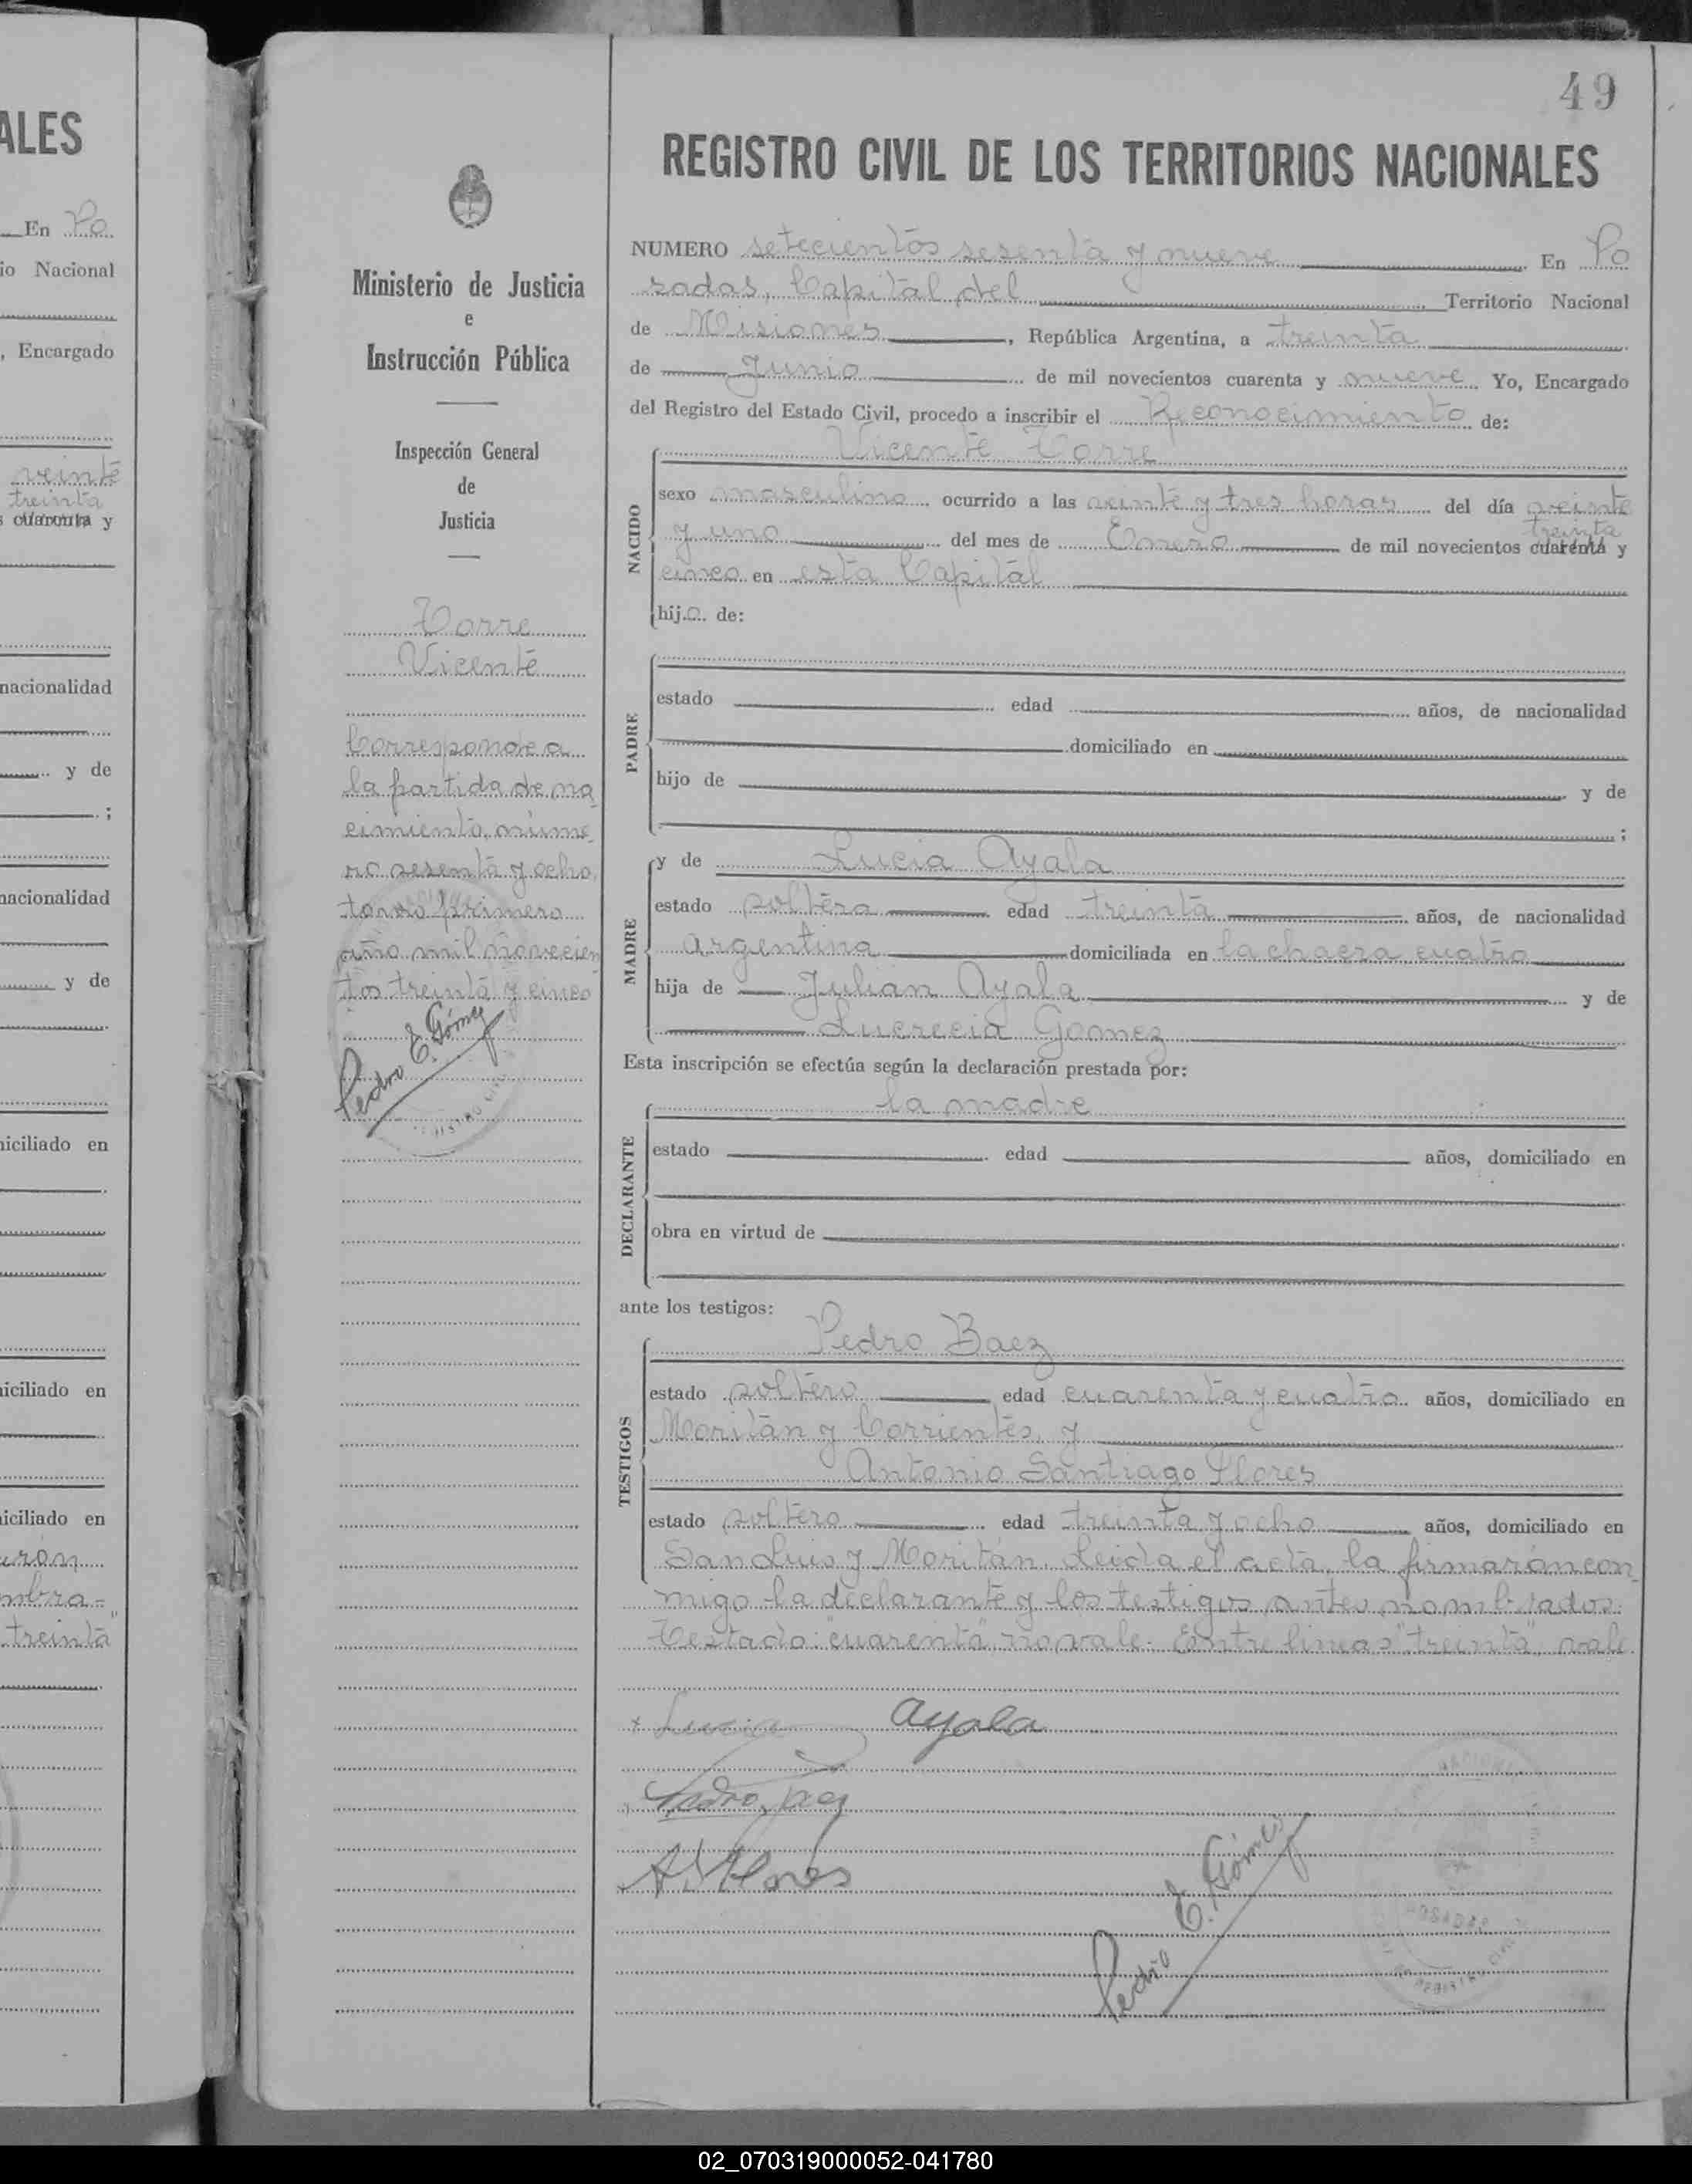 ALES
En Po
io Nacional
, Encargado
veinte
treinta
s cuarenta y
nacionalidad
y de
;
nacionalidad
y de
niciliado en
iciliado en
iciliado en
mbra-
treinta"
49
Ministerio de Justicia
e
Instrucción Pública
Inspección General
de
Justicia
Torre
Vicente
Corresponde a
la partida de na
cimiento núme
ro sesenta y ocho
tomo primero
año mil novecien
tos treinta y cinco
Pedro E. Gómez
REGISTRO CIVIL DE LOS TERRITORIOS NACIONALES
NUMERO setecientos sesenta y nueve En Po
sadas, Capital del Territorio Nacional
de Misiones, República Argentina, a treinta
de Junio de mil novecientos cuarenta y nueve Yo, Encargado
del Registro del Estado Civil, procedo a inscribir el Reconocimiento de:
NACIDO
Vicente Torre
sexo masculino ocurrido a las veinte y tres horas del día veinte
treinta
y uno del mes de Enero de mil novecientos cuarenta y
cinco en esta Capital
hijo de:
PADRE
estado edad años, de nacionalidad
domiciliado en
hijo de y de
;
MADRE
y de Lucia Ayala
estado soltera edad treinta años, de nacionalidad
argentina domiciliada en la chacra cuatro
hija de Julian Ayala y de
Lucrecia Gomez
Esta inscripción se efectúa según la declaración prestada por:
DECLARANTE
la madre
estado edad años, domiciliado en
obra en virtud de
ante los testigos:
TESTIGOS
Pedro Baez
estado soltero edad cuarenta y cuatro años, domiciliado en
Moritán y Corrientes, y
Antonio Santiago Flores
estado soltero edad treinta y ocho años, domiciliado en
San Luis y Moritán. Leida el acta, la firmarán con
migo la declarante y los testigos antes nombrados.
Testado: "cuarenta" no vale. Entre lineas "treinta", vale.
x Lucia Ayala
A S Flores
Pedro E. Gómez
POSADAS
02_070319000052-041780